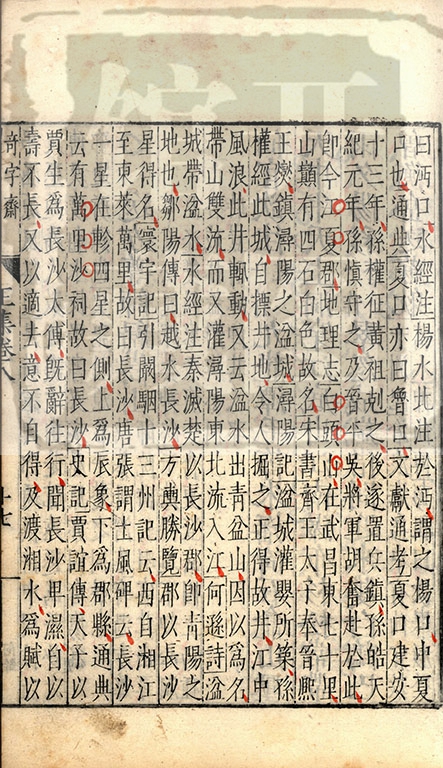 曰沔口水經注楊水北注於沔謂之楊口中夏
口也通典夏口亦曰魯口文獻通考夏口建安
十三年孫權征黃祖剋之後遂置兵鎮孫皓天
紀元年孫慎守之乃晉平吳將軍胡奮赴於此
即今江夏郡地理志白頭山在武昌東七十里
山巔有四石白色故名宋書齊王太子奉晉熙
王燮鎮潯陽之湓城潯陽記湓城灌嬰所築孫
權經此城自標井地令人掘之正得故井江中
風浪此井輒動又云湓水出青盆山因以爲名
帶山雙流而又灌潯陽東北流入江何遜詩湓
城帶湓水水經注秦滅楚以長沙郡即青陽之
地也鄒陽傳曰越水長沙方輿勝覽郡以長沙
星得名寰宇記引闞駰十三州記云西自湘江
至東萊萬里故曰長沙唐張謂土風碑云長沙
一星在軫四星之側上爲辰象下爲郡縣通典
云有萬里沙祠故曰長沙史記賈誼傳天子以
賈生爲長沙太傅旣辭往行聞長沙卑濕自以
壽不長又以適去意不自得及渡湘水爲賦以
奇字齋
王集卷八
十七